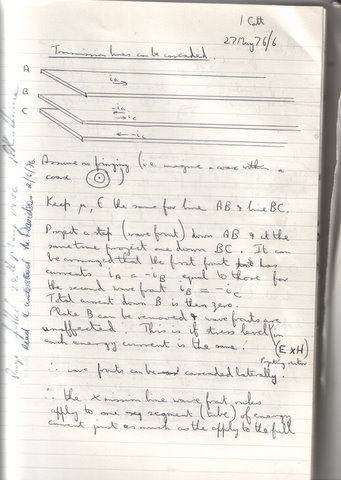 I Catt
27 May 76/6
Transmission lines can be cascaded.
A
iA →
B
-iA
→ iC
C
← -iC
Assume no fringing (i.e. imagine a coax within a
coax )
Keep μ, ε the same for line AB & line BC.
Project a step (wave front) down AB & at the
same time project one down BC. It can
be arranged that the first front has
currents iA = -iB equal to those for
the second wave front iB = -iC
Total current down B is then zero.
Plate B can be removed & wave fronts are
unaffected. This is if stress level
and energy current is the same.
(E x H)
Poynting vector
∴ wave fronts can be cascaded laterally.
∴ the Xmission line wave front rules
apply to one segment (tube) of energy
current just as much as the apply to the full